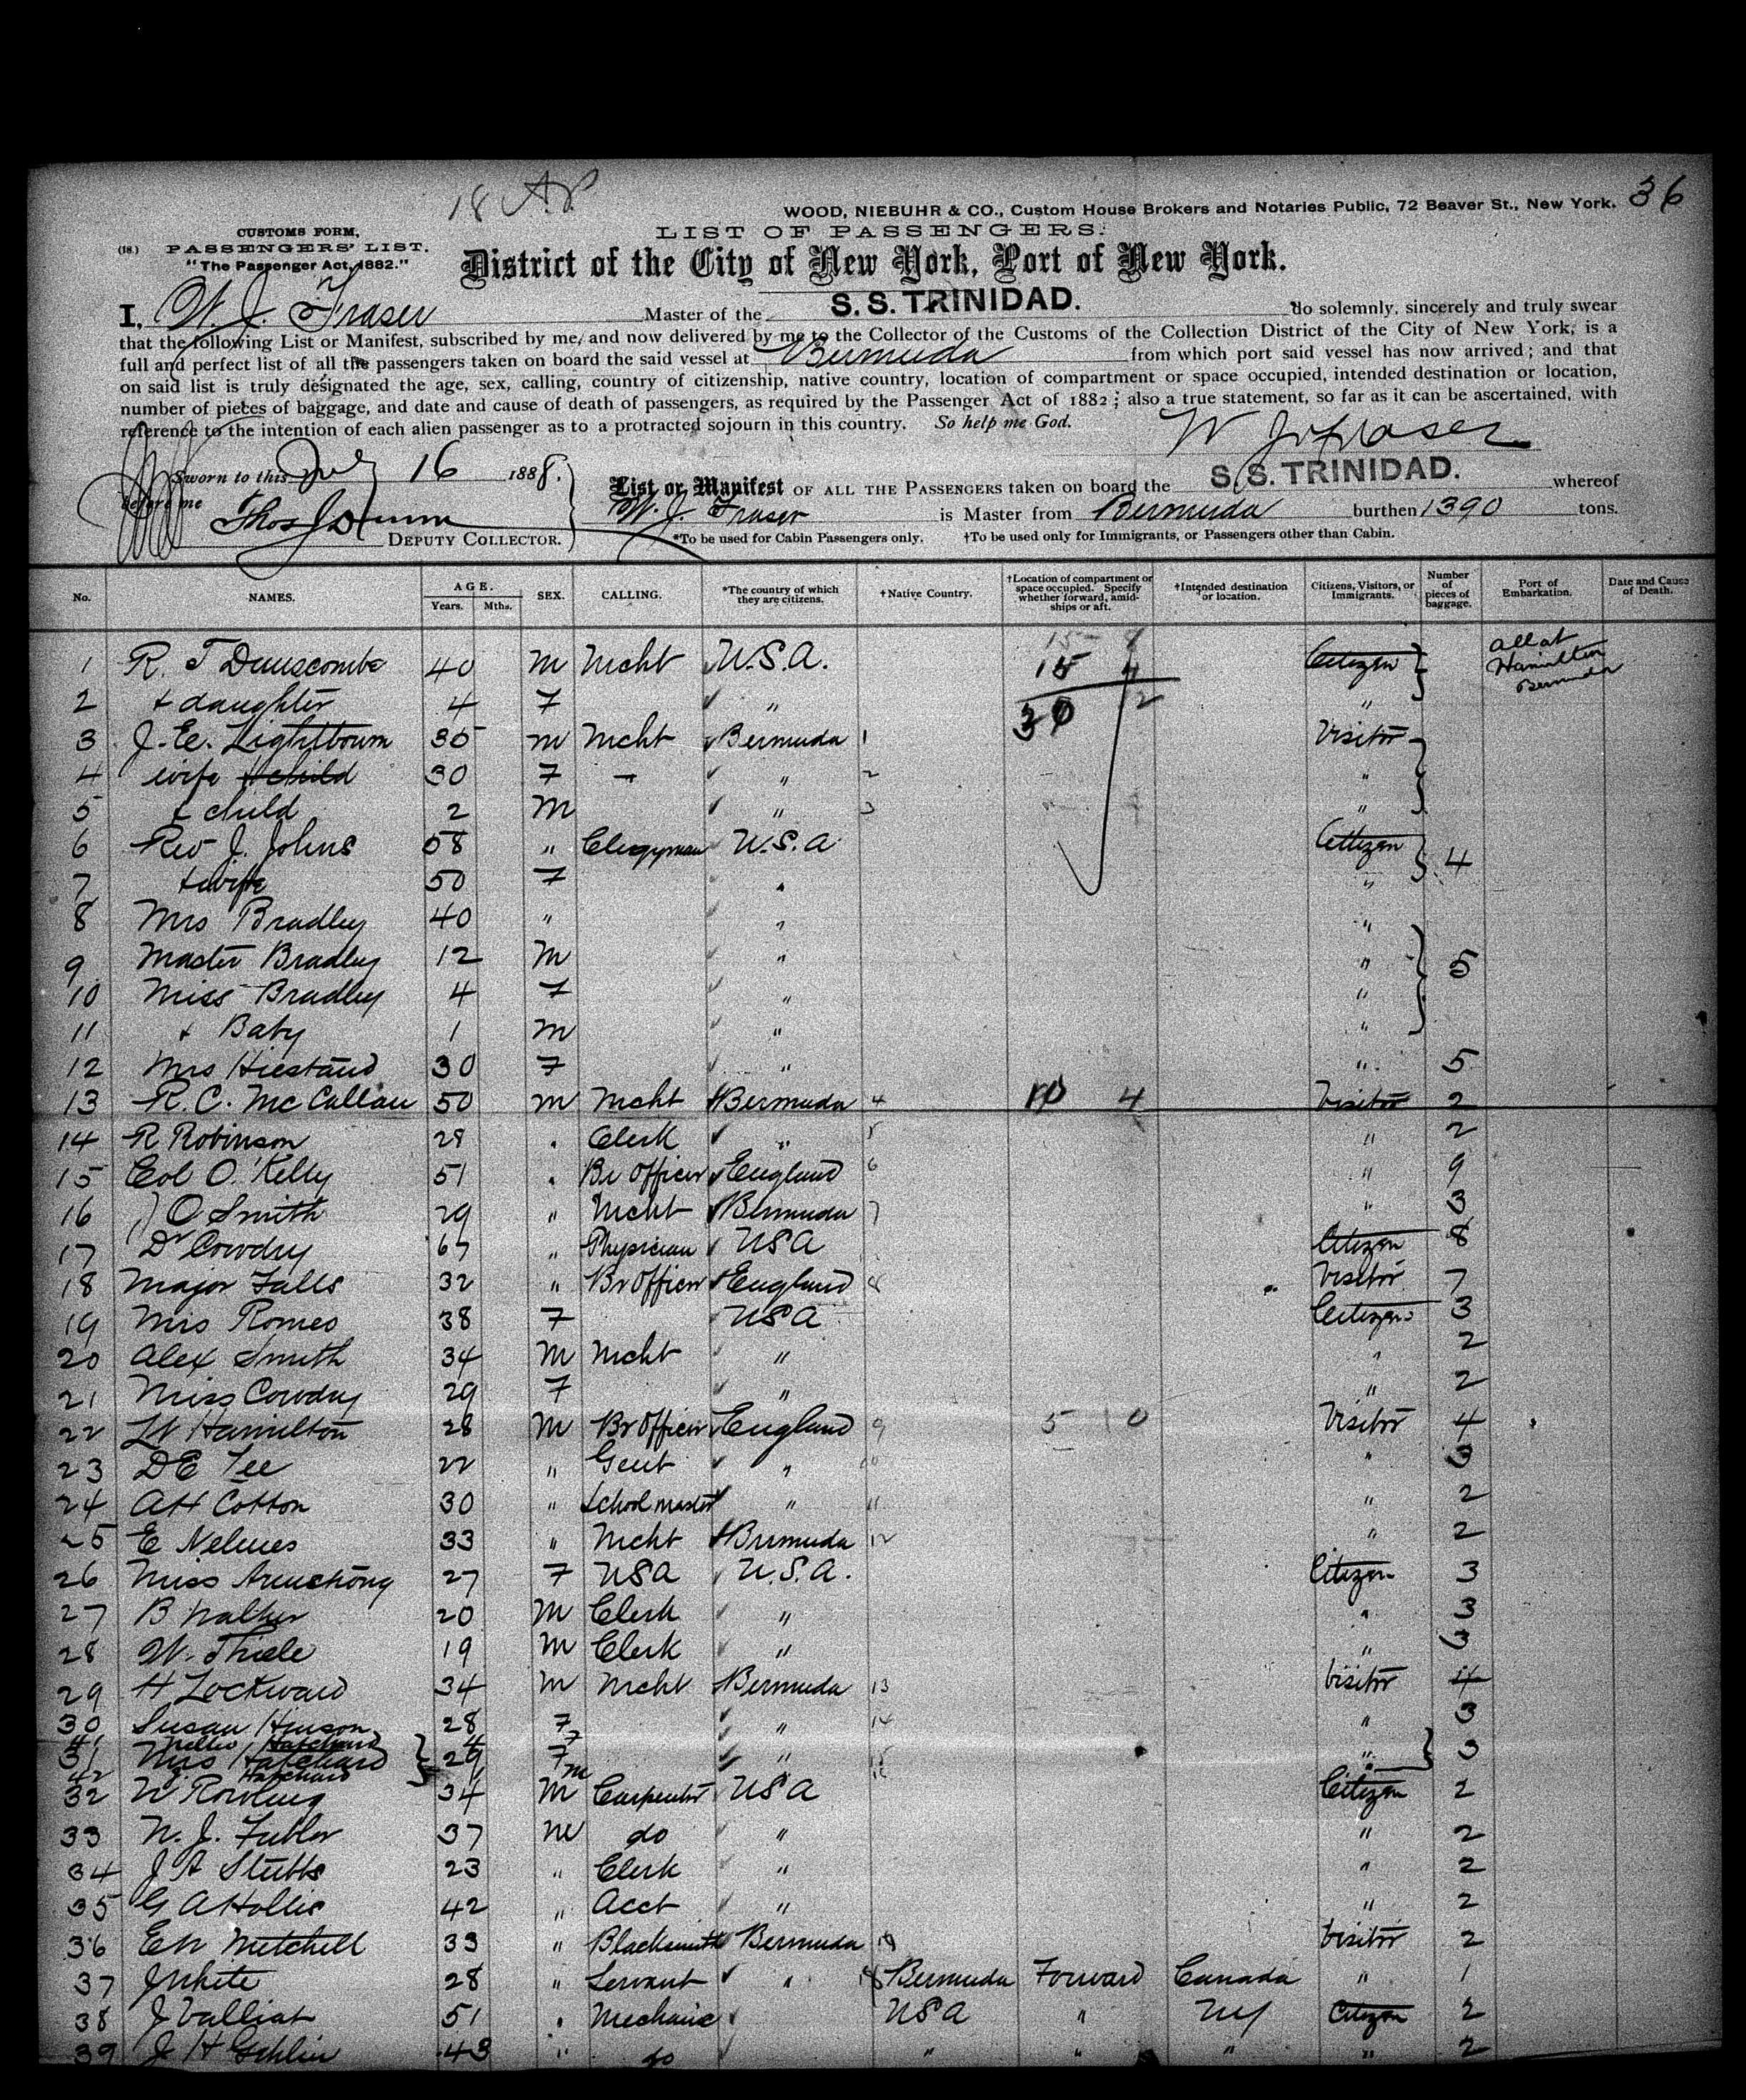 18
36
WOOD, NIEBUHR & CO., Custom House Brokers and Notaries Public, 72 Beaver St., New York.
(18.)
CUSTOMS FORM,
PASSENGERS' LIST.
"The Passenger Act, 1882."
LIST OF PASSENGERS.
District of the City of New York, Port of New York.
I, W. J. Fraser Master of the S. S. TRINIDAD. do solemnly, sincerely and truly swear
that the following List or Manifest, subscribed by me, and now delivered by me to the Collector of the Customs of the Collection District of the City of New York, is a
full and perfect list of all the passengers taken on board the said vessel at Bermuda from which port said vessel has now arrived; and that
on said list is truly designated the age, sex, calling, country of citizenship, native country, location of compartment or space occupied, intended destination or location,
number of pieces of baggage, and date and cause of death of passengers, as required by the Passenger Act of 1882; also a true statement, so far as it can be ascertained, with
reference to the intention of each alien passenger as to a protracted sojourn in this country. So help me God.
W J Fraser
Sworn to this July 16 1888.
before me
DEPUTY COLLECTOR.
List or Manifest OF ALL THE PASSENGERS taken on board the S. S. TRINIDAD. whereof
W. J. Fraser is Master from Bermuda burthen 1390 tons.
*To be used for Cabin Passengers only. †To be used only for Immigrants, or Passengers other than Cabin.
No. NAMES. AGE. Years. Mths. SEX. CALLING. *The country of which they are citizens. †Native Country. †Location of compartment or space occupied. Specify whether forward, amidships or aft. †Intended destination or location. Citizens, Visitors, or Immigrants. Number of pieces of baggage. Port of Embarkation. Date and Cause of Death.
1 R. T Dunscombe 40 M Mcht U.S.A. 15 4 Citizen All at Hamilton Bermuda
2 + daughter 4 F " "
3 J. E. Lightbourn 35 M Mcht Bermuda 1 Visitor
4 wife + child 30 F " 2 "
5 & child 2 M " 3 "
6 Rev J. Johns 58 " Clergyman U.S.A. Cittizen 4
7 + wife 50 F " "
8 Mrs Bradley 40 " " "
9 Master Bradley 12 M " " 5
10 Miss Bradley 4 F " "
11 + Baby 1 M " "
12 Mrs Hiestand 30 F " " 5
13 R. C. McCallan 50 M Mcht Bermuda 4 10 4 Visitor 2
14 R Robinson 28 " Clerk " 5 " 2
15 Col O'Kelly 51 " Br Officer England 6 " 9
16 O Smith 29 " Mcht Bermuda 7 " 3
17 Dr Cowdry 67 " Physician USA Citizen 8
18 Major Falls 32 " Br Officer England 8 Visitor 7
19 Mrs Romeo 38 F USA Citizen 3
20 Alex Smith 34 M Mcht " " 2
21 Miss Cowdry 29 F " " 2
22 Lt Hamilton 28 M Br Officer England 9 5 0 Visitor 4
23 D E Lee 22 " Gent " 10 " 3
24 A H Cotton 30 " School master " 11 " 2
25 E Nelmes 33 " Mcht Bermuda 12 " 2
26 Miss Armstrong 27 F USA U.S.A. Citizen 3
27 B Walker 20 M Clerk " " 3
28 W. Thiele 19 M Clerk " " 3
29 H Lockward 34 M Mcht Bermuda 13 Visitor 4
30 Susan Hinson 28 F " 14 " 3
41 Nellie Hatchard 4 F
31 Mrs Hatchard 29 F " " 3
42 Hatchard M
32 W Rowling 34 M Carpenter USA Citizen 2
33 N. J. Fubler 37 M do " " 2
34 J A Stubbs 23 " Clerk " " 2
35 G A Hollis 42 " Acct " " 2
36 E N Mitchell 33 " Blacksmith Bermuda Visitor 2
37 J White 28 " Servant " 18 Bermuda Forward Canada " 1
38 J Valliat 51 " Mechanic USA " NY Citizen 2
39 J H 43 " do " " " " 2